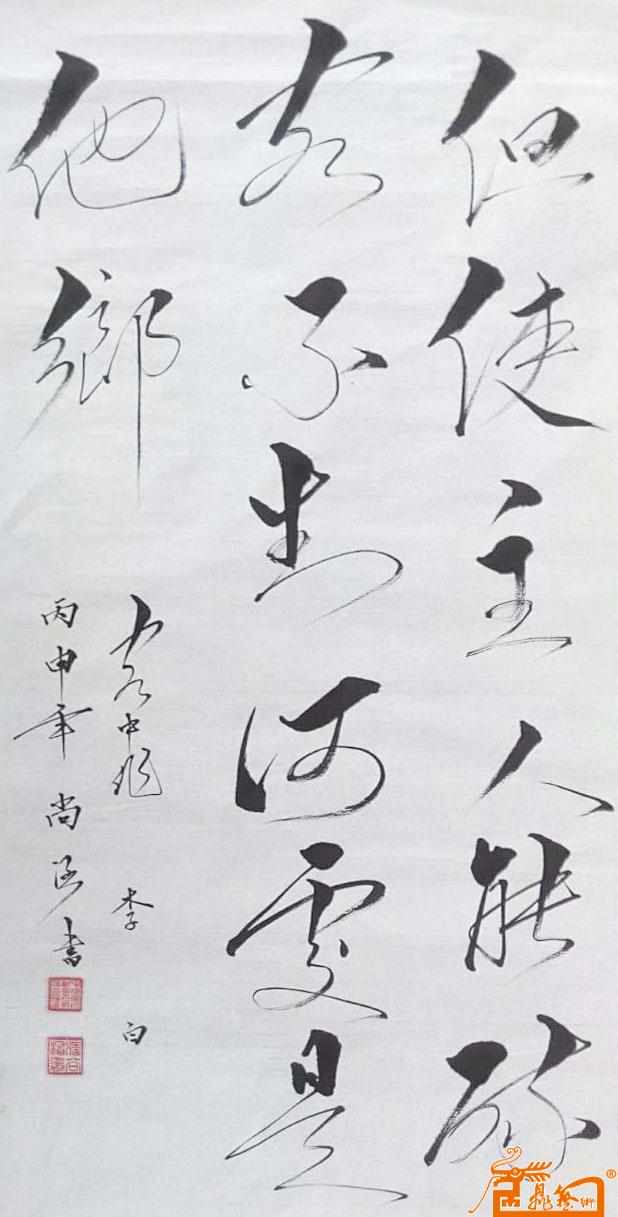 但使主人能醉
客不知何處是
他鄉
客中作 李白
丙申年尚書